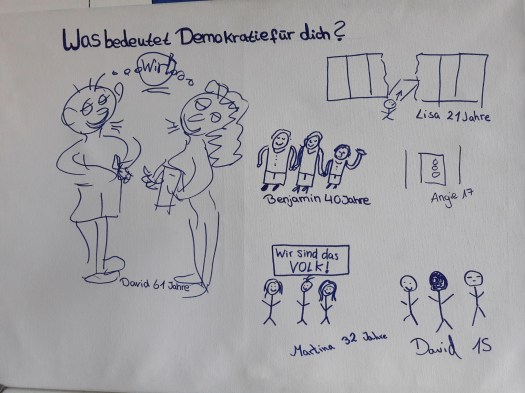 Was bedeutet Demokratie für dich?
Wir!
Lisa 21 Jahre
Benjamin 40 Jahre
Angie 17
David 61 Jahre
Wir sind das
VOLK!
Martina 32 Jahre
David 15